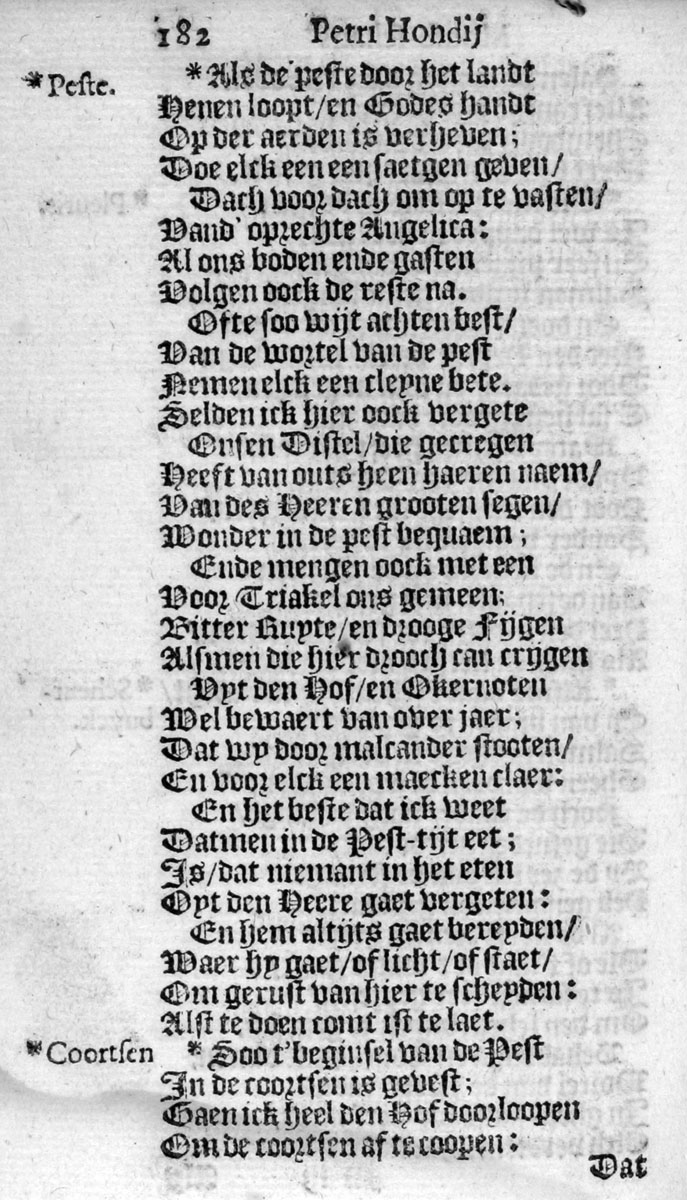 182 Petri Hondij
*Peste. *Als de peste door het landt
Henen loopt/en Godes handt
Op der aerden is verheven;
Doe elck een een saetgen geven/
Dach voor dach om op te vasten/
Vand' oprechte Angelica:
Al ons boden ende gasten
Volgen oock de reste na.
Ofte soo wijt achten best/
Van de wortel van de pest
Nemen elck een cleyne bete.
Selden ick hier oock vergete
Onsen Distel/die gecregen
Heeft van outs heen haeren naem/
Van des Heeren grooten segen/
Wonder in de pest bequaem;
Ende mengen oock met een
Voor Triakel ons gemeen;
Bitter Ruyte/en drooge Fijgen
Alsmen die hier drooch can crijgen
Vyt den Hof/en Okernoten
Wel bewaert van over jaer;
Dat wy door malcander stooten/
En voor elck een maecken claer:
En het beste dat ick weet
Datmen in de Pest-tijt eet;
Is/dat niemant in het eten
Oyt den Heere gaet vergeten:
En hem altijts gaet bereyden/
Waer hy gaet/of licht/of staet/
Om gerust van hier te scheyden:
Alst te doen comt ist te laet.
*Coortsen * Soo t'beginsel van de Pest
In de coortsen is gevest;
Gaen ick heel den Hof doorloopen
Om de coortsen af te coopen:
Dat